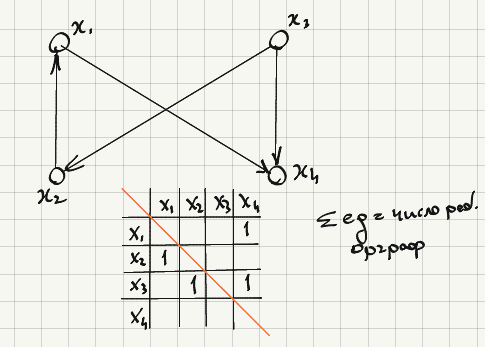 x₁
x₃
x₂
x₄
x₁ x₂ x₃ x₄
x₁ 1
x₂ 1
x₃ 1 1
x₄
Σ ед = число реб.
орграф